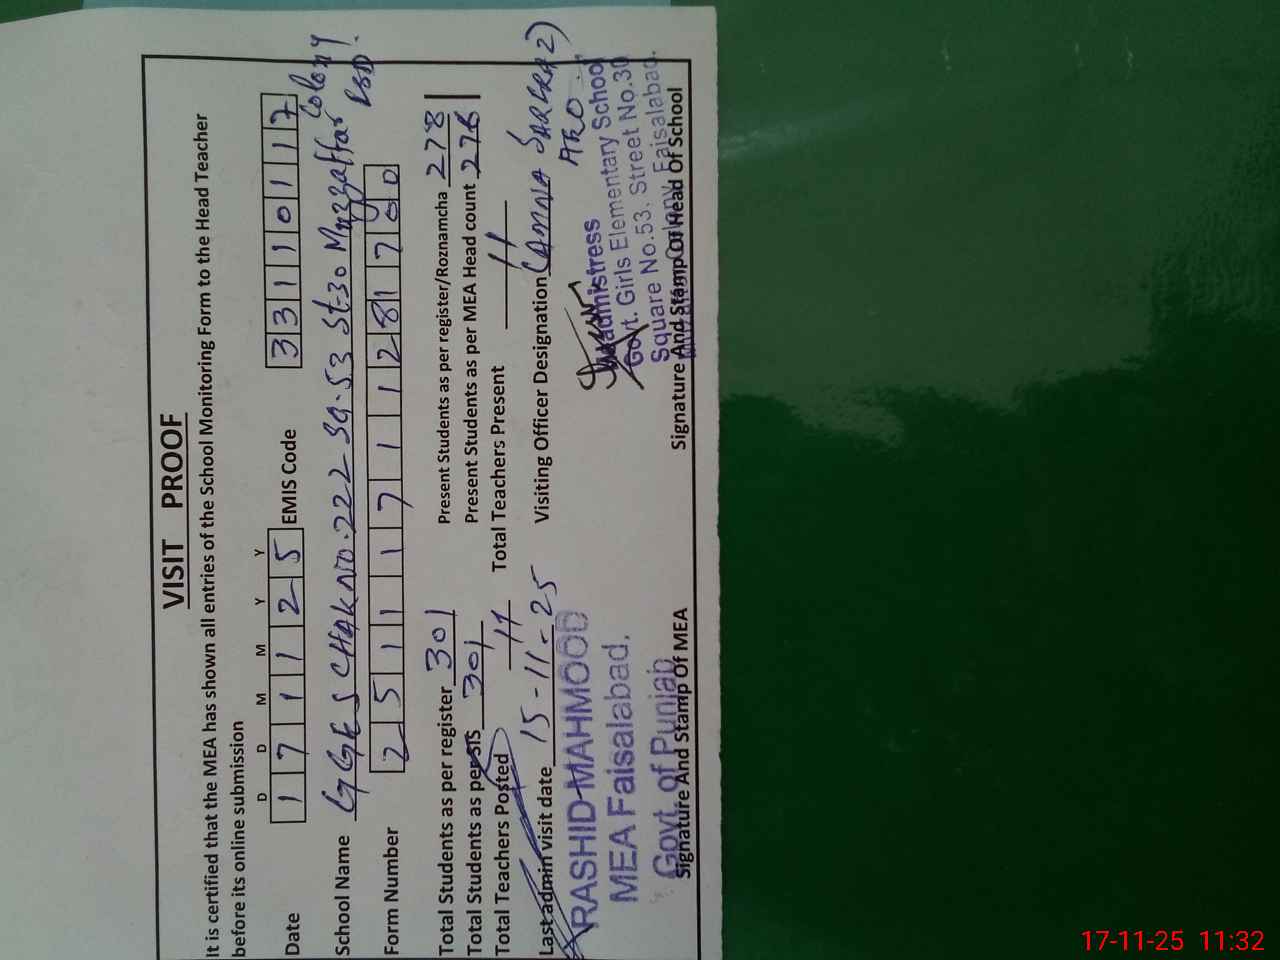 VISIT PROOF
It is certified that the MEA has shown all entries of the School Monitoring Form to the Head Teacher
before its online submission
D D M M Y Y
Date 1 7 1 1 2 5 EMIS Code 3 3 1 1 0 1 1 7
School Name GGES CHAK NO. 222 SQ. 53 St. 30 Muzzaffar Colony FSD.
Form Number 2 5 1 1 1 7 1 1 2 8 1 7 0 0
Total Students as per register 301 Present Students as per register/Roznamcha 278
Total Students as per SIS 301 Present Students as per MEA Head count 278
Total Teachers Posted 11 Total Teachers Present 11
Last admin visit date 15-11-25 Visiting Officer Designation (AMNA SARFRAZ)
AEO
RASHID MAHMOOD
MEA Faisalabad.
Govt. of Punjab
Signature And Stamp Of MEA
Headmistress
Govt. Girls Elementary School
Square No.53. Street No.30
Colony Faisalabad.
Signature And Stamp Of Head Of School
17-11-25 11:32